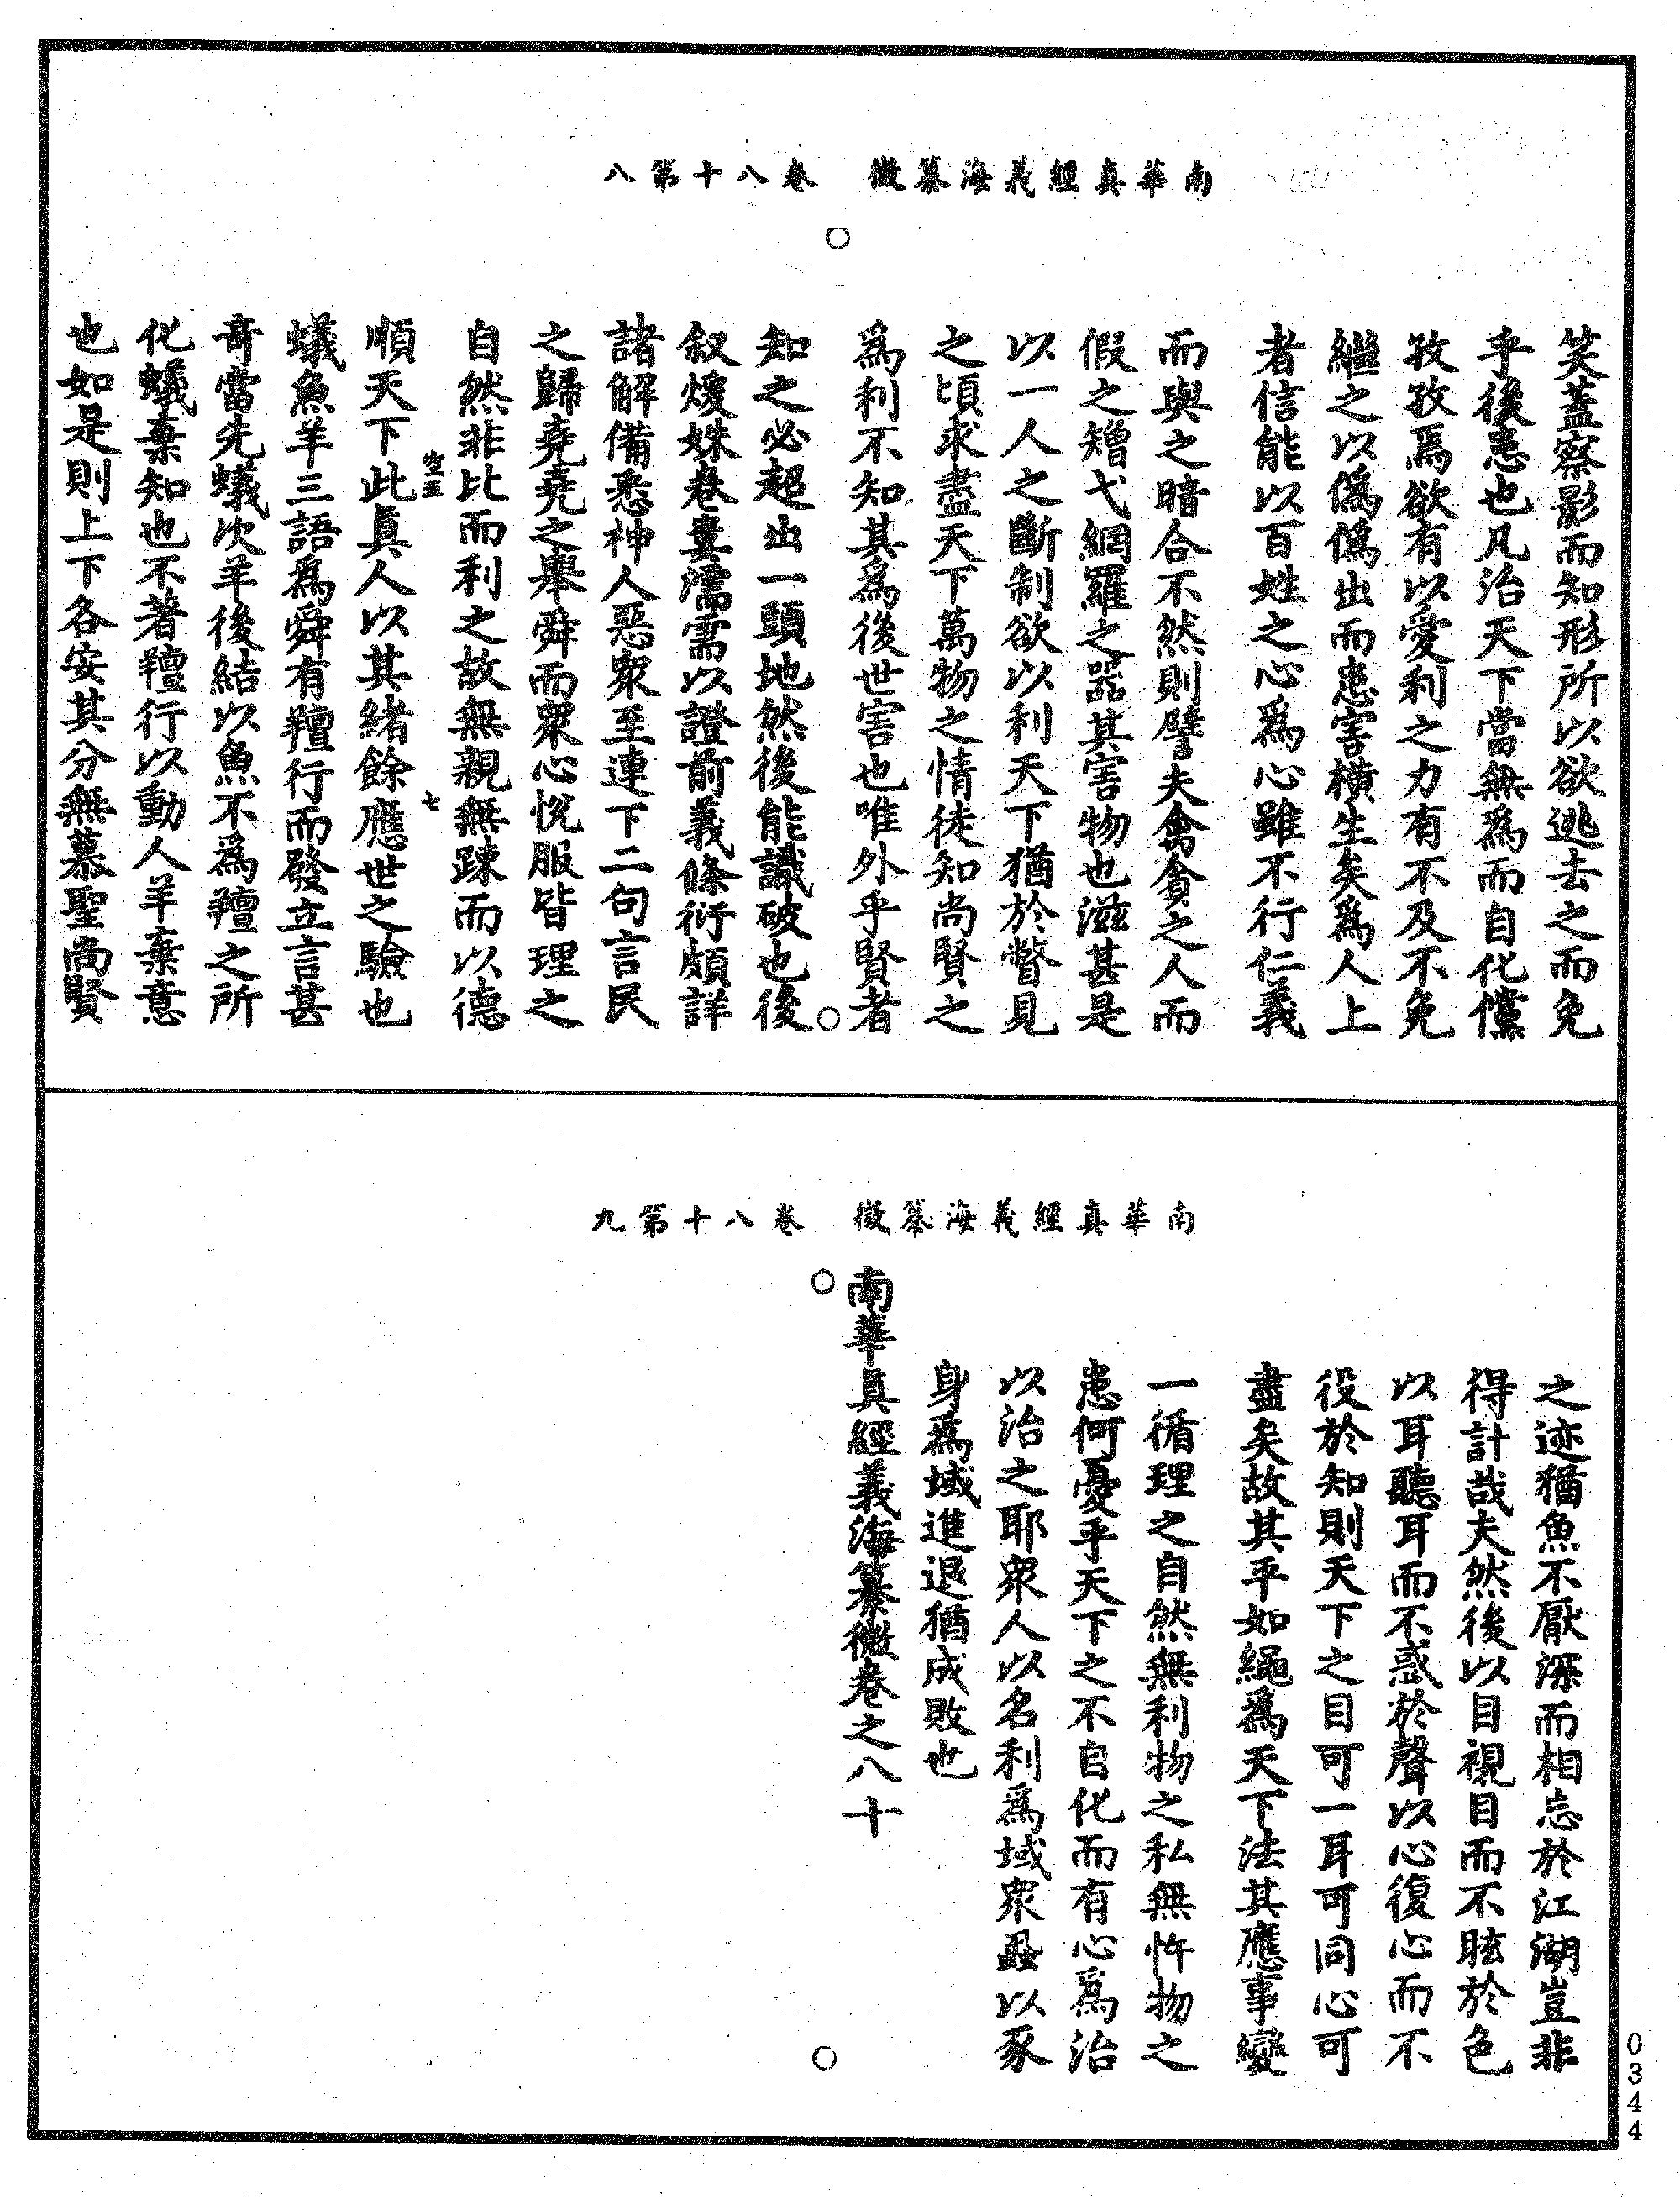 南華真經義海纂微　卷八十第八
笑蓋察影而知形所以欲逃去之而免
乎後患也凡治天下當無為而自化儻
孜孜焉欲有以愛利之力有不及不免
繼之以偽偽出而患害橫生矣為人上
者信能以百姓之心為心雖不行仁義
而與之暗合不然則譬夫禽貪之人而
假之矰弋網羅之器其害物也滋甚是
以一人之斷制欲以利天下猶於瞥見
之頃求盡天下萬物之情徒知尚賢之
為利不知其為後世害也唯外乎賢者
知之必超出一頭地然後能識破也後
叙煖姝卷婁濡需以證前義條衍頗詳
諸解備悉神人惡眾至連下二句言民
之歸堯堯之舉舜而眾心悅服皆理之
自然非比而利之故無親無踈而以德
順天下此真人以其緒餘應世之驗也
蟻魚羊三語為舜有羶行而發立言甚
奇當先蟻次羊後結以魚不為羶之所
化蟻棄知也不著羶行以動人羊棄意
也如是則上下各安其分無慕聖尚賢
七
南華真經義海纂微　卷八十第九
之迹猶魚不厭深而相忘於江湖豈非
得計哉夫然後以目視目而不眩於色
以耳聽耳而不惑於聲以心復心而不
役於知則天下之目可一耳可同心可
盡矣故其平如繩為天下法其應事變
一循理之自然無利物之私無忤物之
患何憂乎天下之不自化而有心為治
以治之耶眾人以名利為域眾蝨以豕
身為域進退猶成敗也
南華真經義海纂微卷之八十
0344